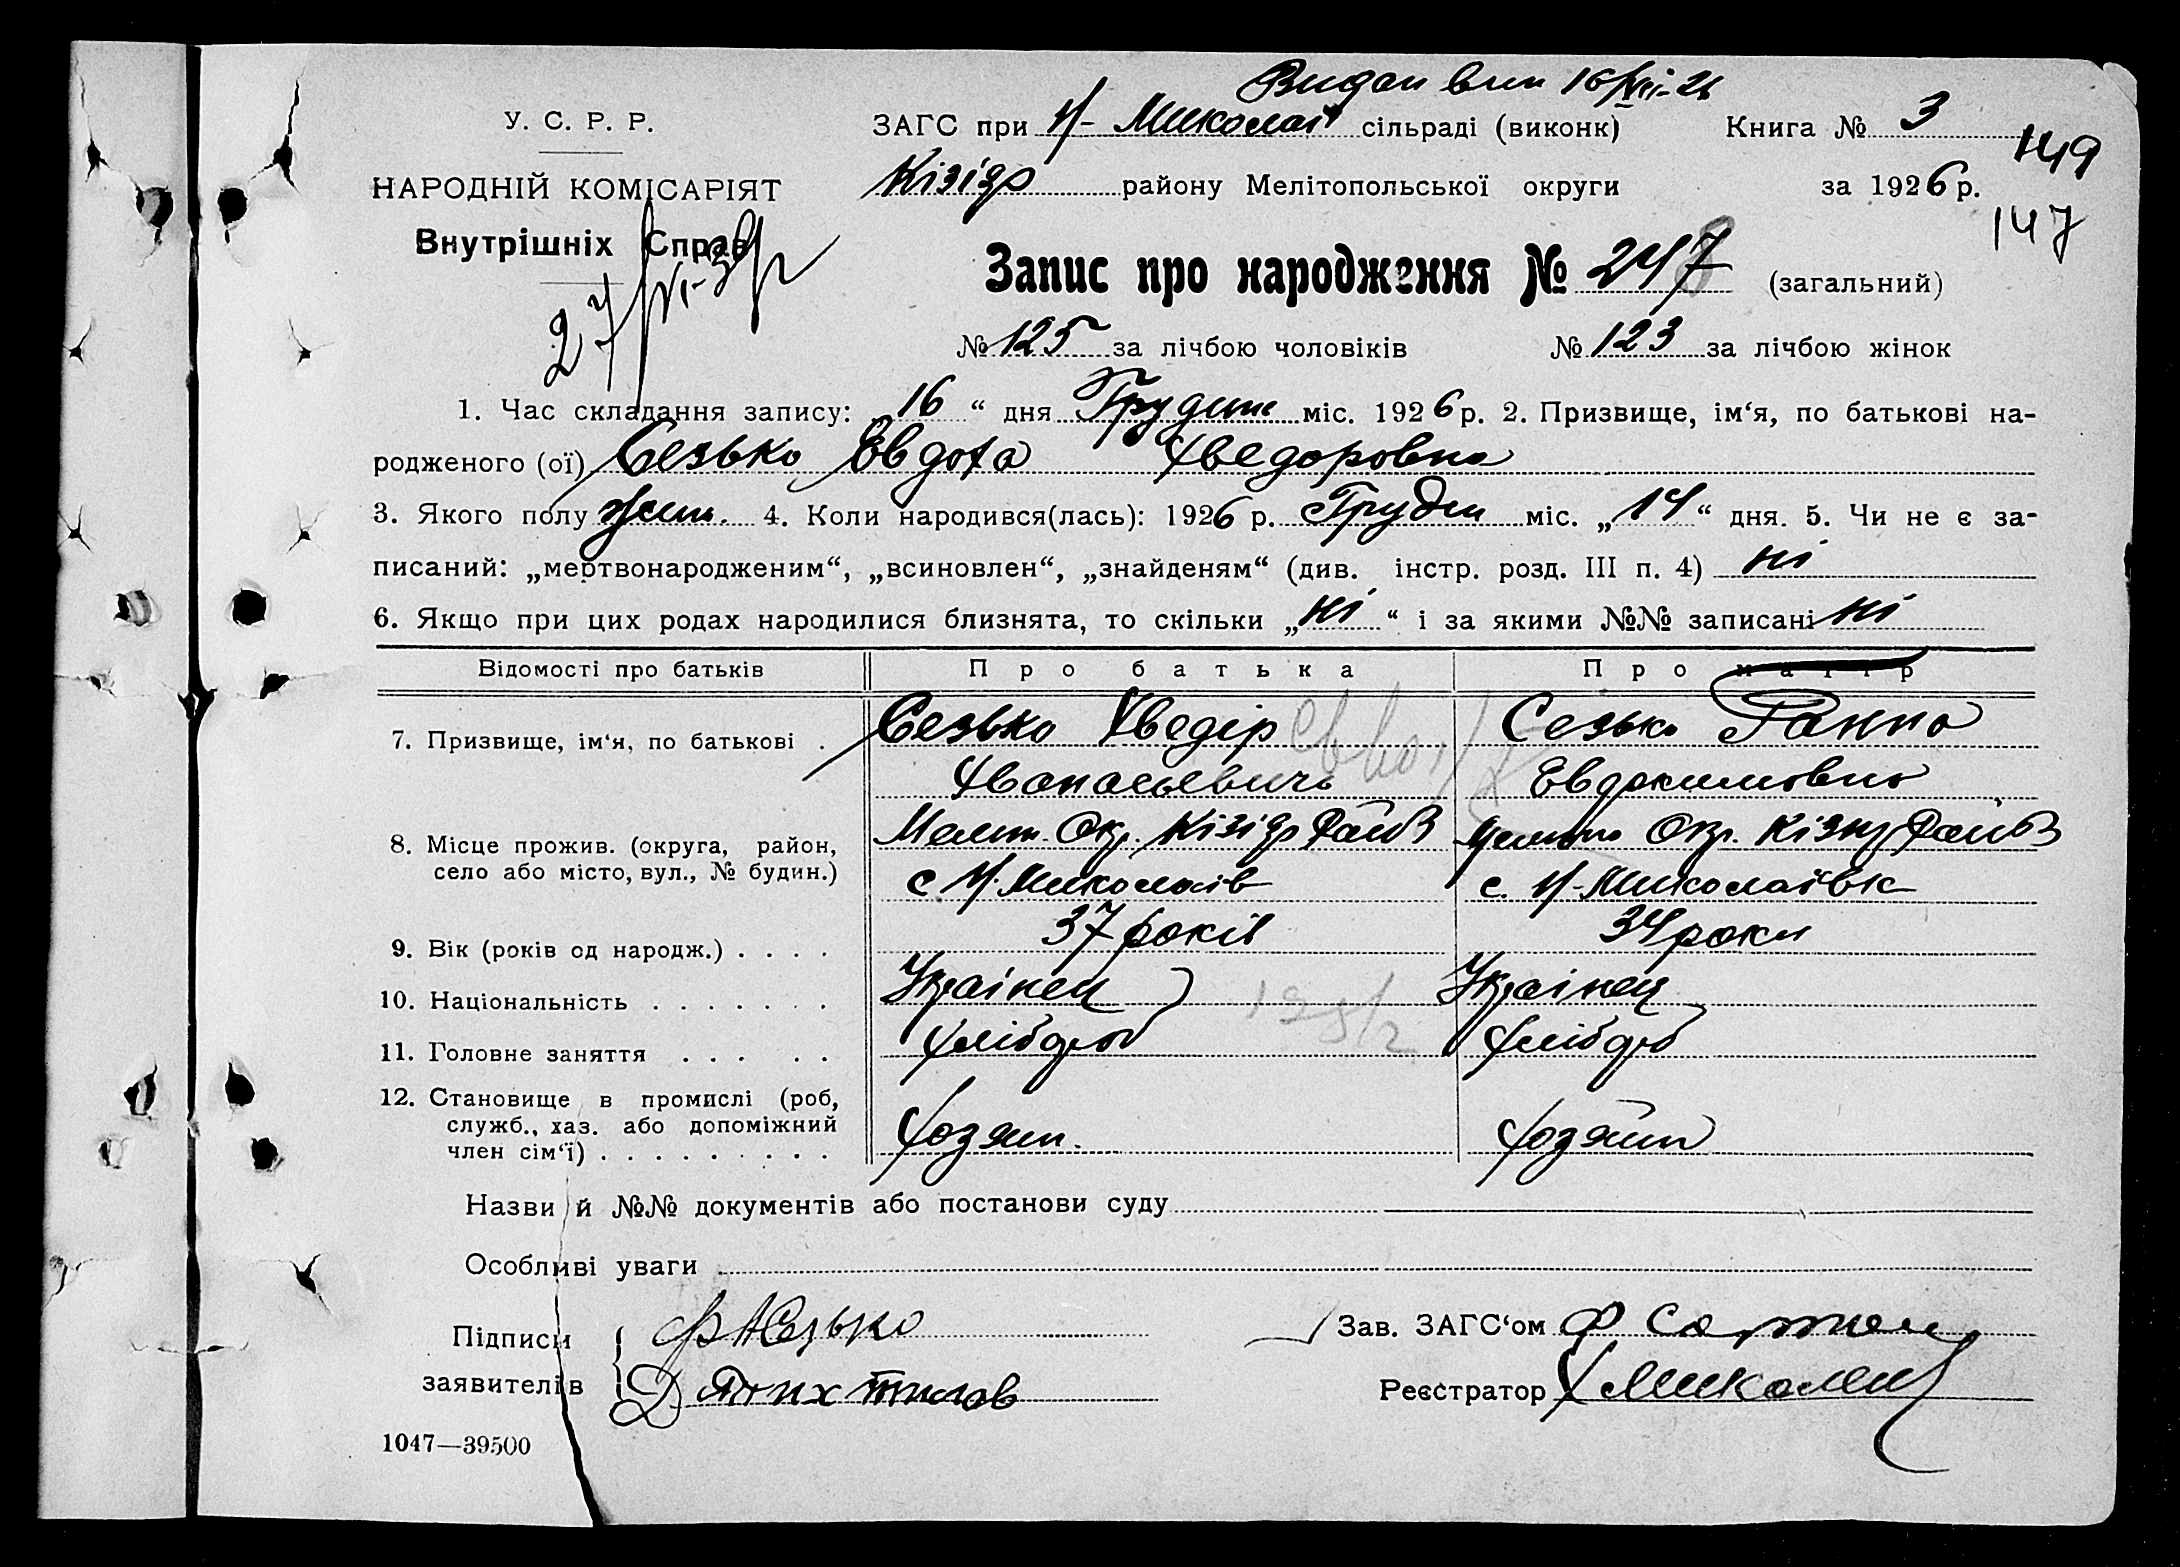 Видан вип 16/XII-26
У. С. Р. Р.
ЗАГС при Н-Миколаї сільраді (виконк) Книга № 3
149
НАРОДНІЙ КОМІСАРІЯТ
Кізіяр району Мелітопольської округи за 1926 р.
147
Внутрішніх Справ
Запис про народження № 247 (загальний)
№ 125 за лічбою чоловіків № 123 за лічбою жінок
1. Час складання запису: 16 “ дня Грудня міс. 1926 р. 2. Призвище, ім‘я, по батькові на-
родженого (ої) Сезько Евдоха Хведоровна
3. Якого полу жін. 4. Коли народився(лась): 1926 р. Грудня міс. „ 14 “ дня. 5. Чи не є за-
писаний: „мертвонародженим“, „всиновлен“, „знайденям“ (див. інстр. розд. III п. 4) ні
6. Якщо при цих родах народилися близнята, то скільки „ ні “ і за якими №№ записані ні
Відомості про батьків Про батька Про матір
7. Призвище, ім‘я, по батькові . Сезько Хведір Сезько Ганна
Хванасьевичь Евдокимовна
8. Місце прожив. (округа, район, Меліт. Окр. Кізіяр Рай Окр. Кізіяр Рай
село або місто, вул., № будин.) с Н-Миколаїв с. Н-Миколаївк
9. Вік (років од народж.) . . . . 37 років 34 роки
10. Національність . . . . . . . Украінец Украінец
11. Головне заняття . . . . . Хлібороб Хлібороб
12. Становище в промислі (роб,
служб., хаз. або допоміжний
член сім‘ї) . . . . . . . . . Хозяин. Хозяин
Назви й №№ документів або постанови суду
Особливі уваги
Підписи Ф А Сезько Зав. ЗАГС‘ом
заявителів Реєстратор
1047—39500